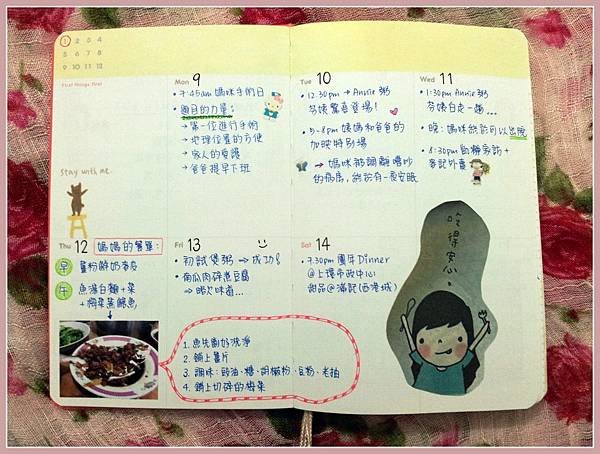 1 2 3 4
5 6 7 8
9 10 11 12
First things first
Stay with me.
Mon 9
• 7:45am 媽咪手術日
→ 第一位進行手術
→ 地理位置的方便
→ 家人的愛護
→ 爸爸提早下班
Tue 10
• 12.30pm → Annie 粥
芬姨驚喜登場!
• 5-8pm 媽媽和爸爸的
加映特別場
→ 媽咪被調離嘈吵
的病房,終於有一夜安眠
Wed 11
• 1:30pm Annie 粥
芬姨白走一趟...
• 晚:媽咪終於可以出院
• 8:30pm
麥記外賣
Thu 12 媽媽的餐單:
早
薑粉鮮奶麥皮
午
魚湯白麵+菜
+梅菜蒸鯇魚
Fri 13
• 初試煲粥 → 成功!
• 南瓜肉碎煮豆腐
Sat 14
• 7.30pm 團年Dinner
@上環市政中心
甜品@滿記(西港城)
1. 魚先劏好洗淨
2. 鋪上薑片
3. 調味:豉油、糖、胡椒粉、豆粉、老抽
4. 鋪上切碎的梅菜
吃得安心。